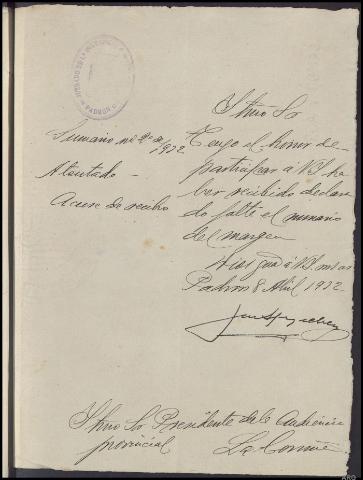 JUZGADO DE INSTRUCCIÓN
PADRON
Sumario nº 20 de 1932
Atentado -
Acuse de recibo
Iltmo Sr
Tengo el honor de
participar á V.S. ha
ber recibido declara
do falta el sumario
del margen
Dios gue á V.S. ms as
Padron 8 Abril 1932.
Iltmo Sr Presidente de la Audiencia
provincial
La Coruña